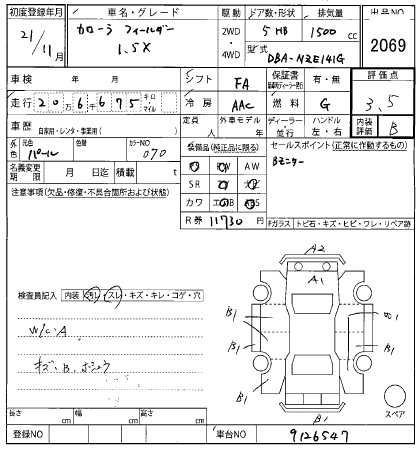 初度登録年月 車名・グレード 駆動 ドア数・形状 排気量 出品NO
21/11月 カローラ フィールダー 1.5X 2WD・4WD 5 HB 1500 cc 2069
型式 DBA-NZE141G
車検 年 月 シフト FA 保証書 有・無 評価点
走行 20万6千675 キロ・マイル 冷房 AAC 燃料 G 3.5
車歴 自家用・レンタ・事業用( ) 定員 人 外車モデル 年 ディーラー・並行 ハンドル 左・右 内装評価 B
外色 元色 パール 色替 カラーNO 070 装備品(純正品に限る) セールスポイント(正常に作動するもの)
名義変更期限 月 日迄 積載 t
AW Bモニター
SR
注意事項(欠品・修復・不具合箇所および状態) カワ
R券 11730 円 Fガラス トビ石・キズ・ヒビ・ワレ・リペア跡
A2
A1
検査員記入 内装 汚れ・スレ・キズ・キレ・コゲ・穴
B1
W/C・A
B1 B1
キズ、B、
B1 B1
スペア
B1
長さ cm 幅 cm 高さ cm
登録NO 車台NO 9126547